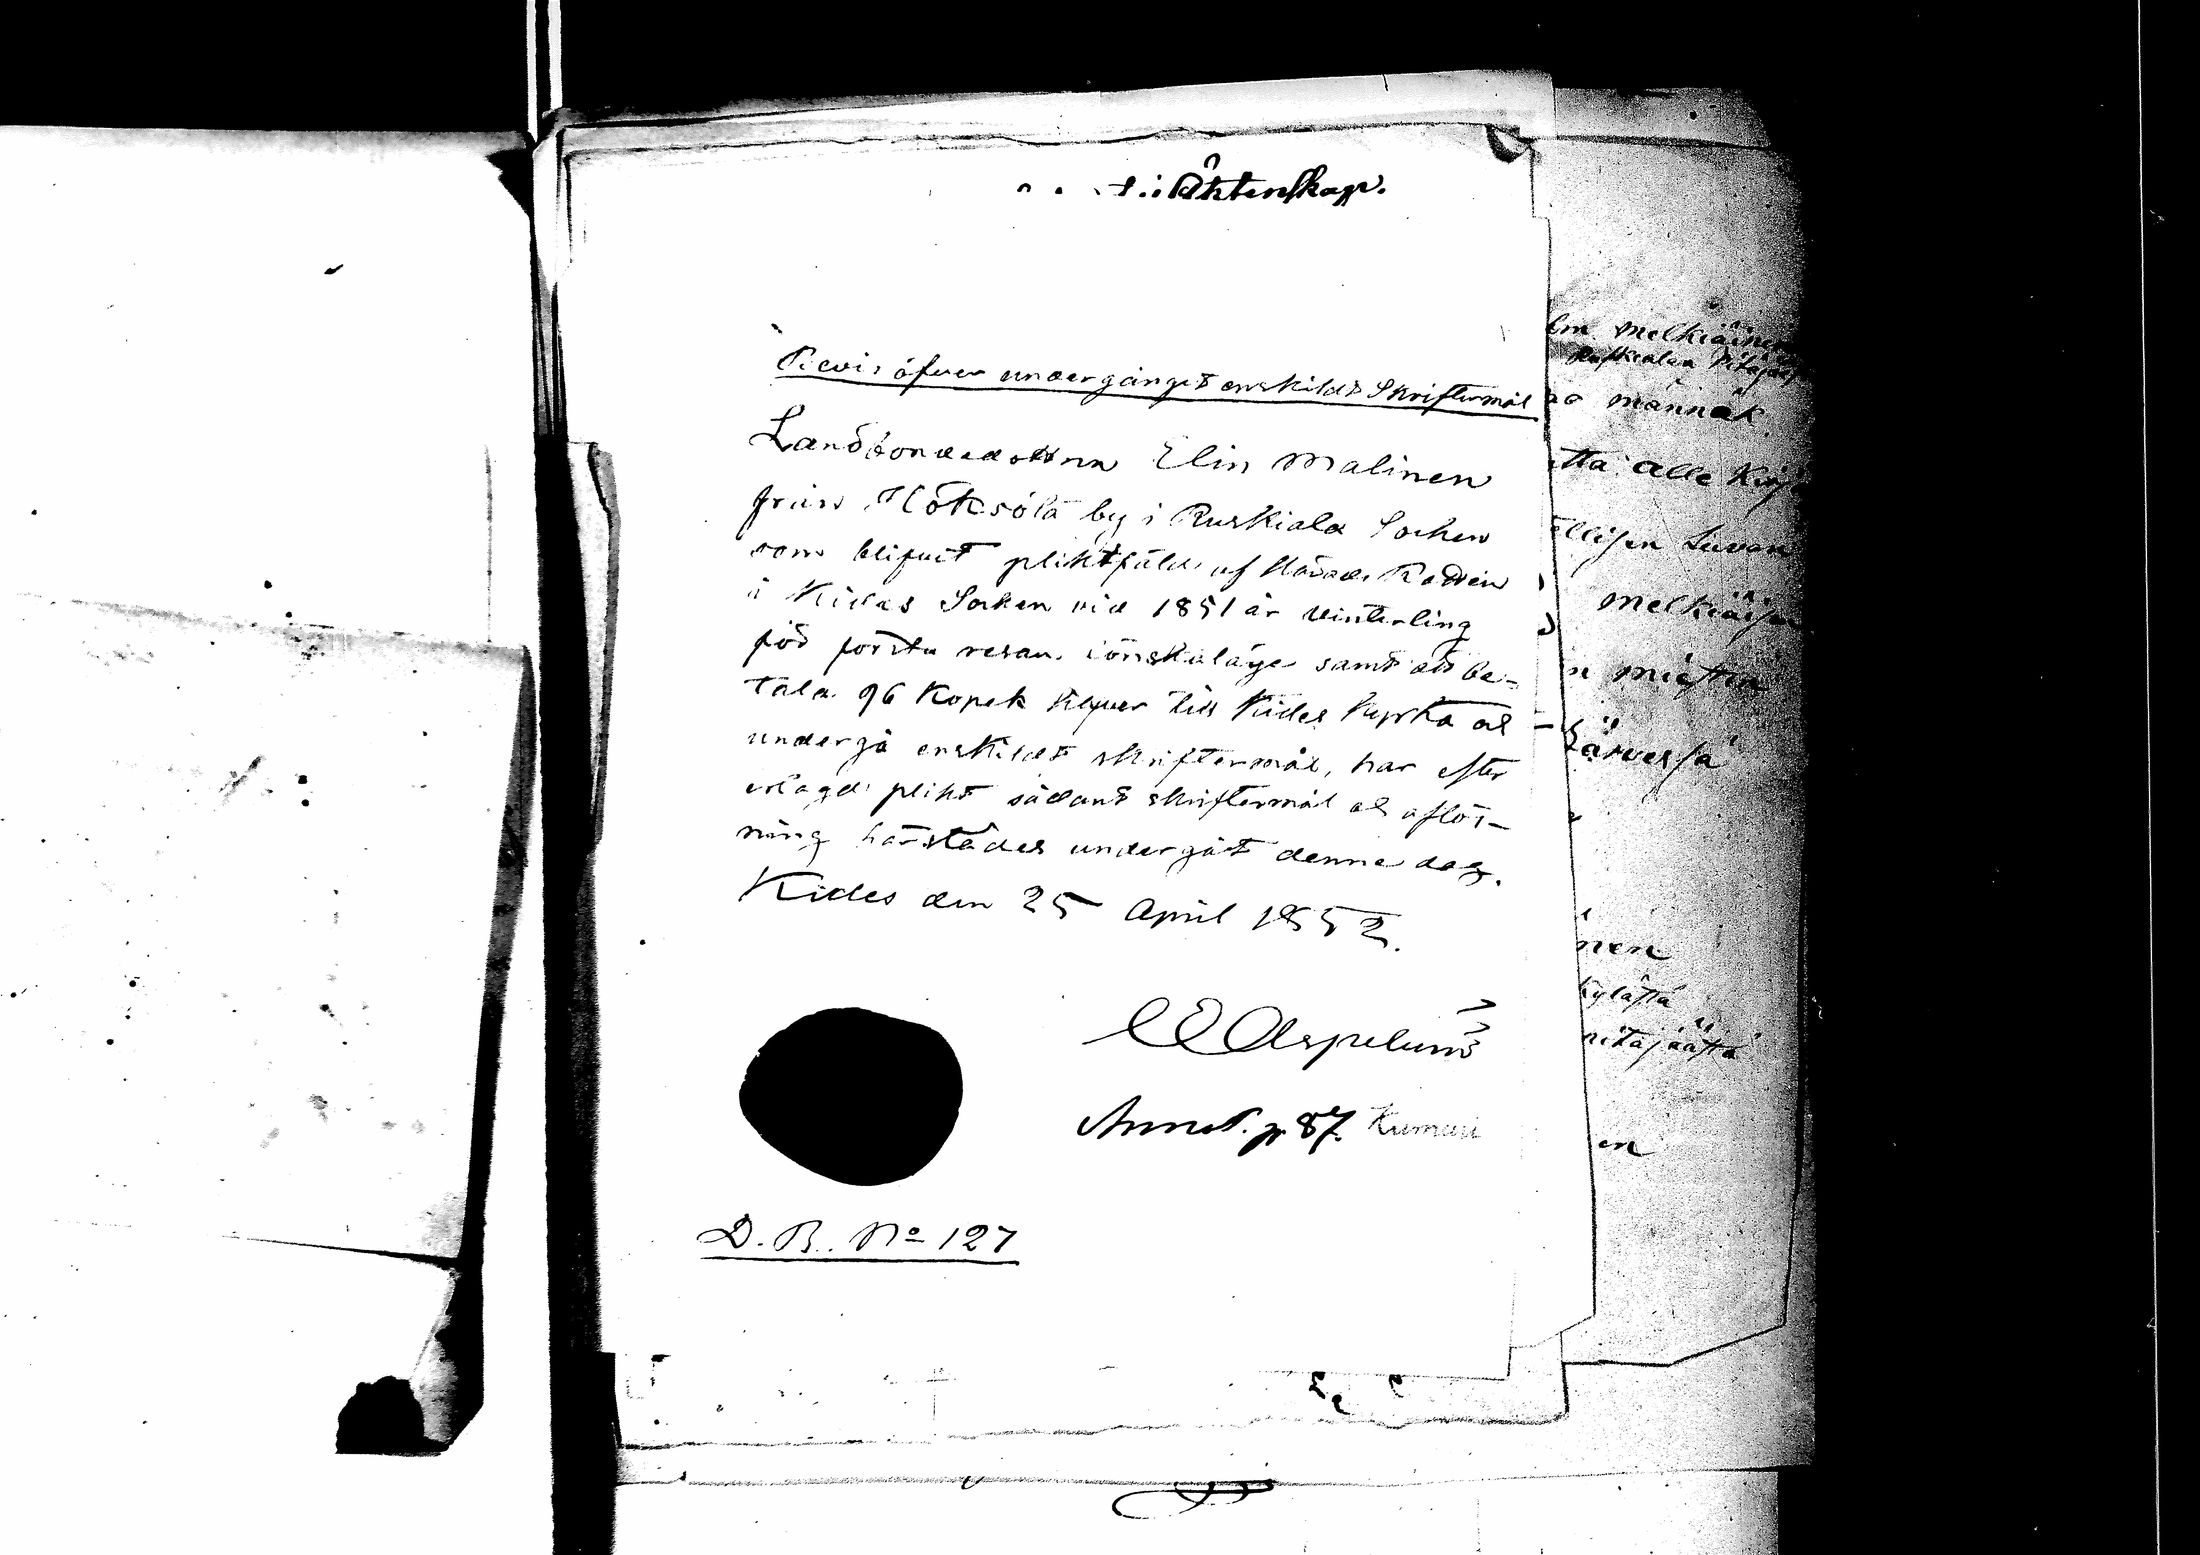 i Äktenskap.
Bevis öfver undergånget enskildt Skriftermål
Landbondedottren Elin Malinen
från Hötzölä by i Ruskiala Socken
som blifvit pliktfäld af Härads Rätten
i Kides Socken vid 1851 år Vinterting
för första resan lönskaläge samt att be-
tala 96 Kopek Silfver till Kides Kyrka och
undergå enskildt skriftermål, har efter
erlagd plikt sådant skriftermål och aflös-
ning härstädes undergått denne dag.
Kides den 25 April 1852.
Aspelund
Annot. p. 87.
D. B. No 127
Melkiäinen
männäk
alle
ellisen Luvan
Melkiäisen
miehen
järvessä
nen
kylästä
pitäjäästä
en